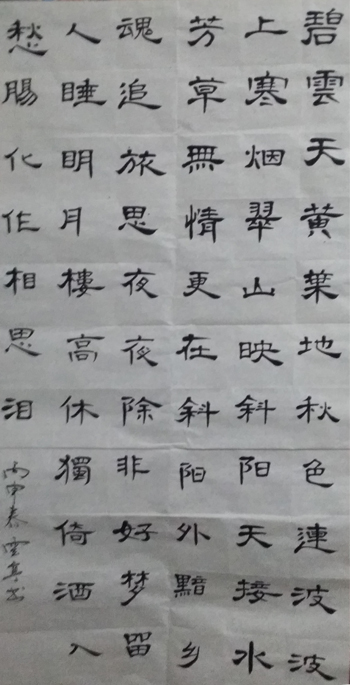 碧雲天黄葉地秋色連波波
上寒烟翠山映斜阳天接水
芳草無情更在斜阳外黯乡
魂追旅思夜夜除非好梦留
人睡明月樓高休獨倚酒入
愁腸化作相思泪
丙申春雲